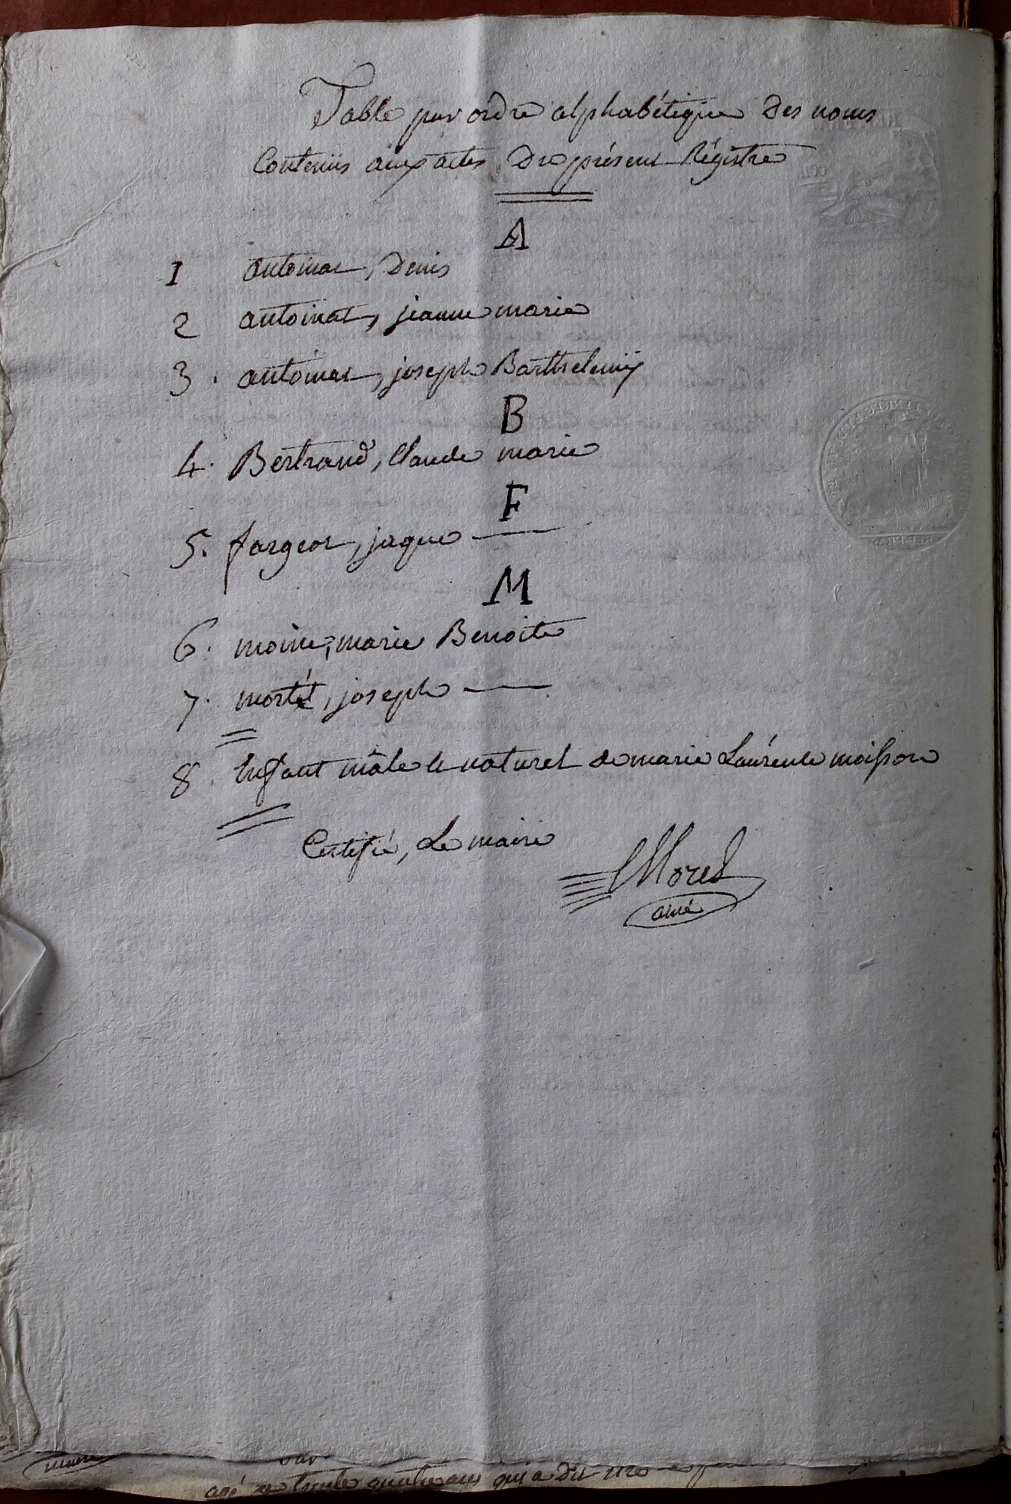 Table par ordre alphabétique Des noms
Contenüs aux actes Du présent Régistre
A
1 antoinat, Denis
2 antoinat, jeanne marie
3 . antoinat, joseph Barthelemÿ
B
4. Bertrand, Claude marie
F
5. fargeot, jaque
M
6. moine, marie Benoite
7. mortét, joseph
8 Enfant mâle et naturel de marie Laurence moisson
Certifié, Le maire
Morel
ainé
maire
agé de trente quatre ans qui a dit etre